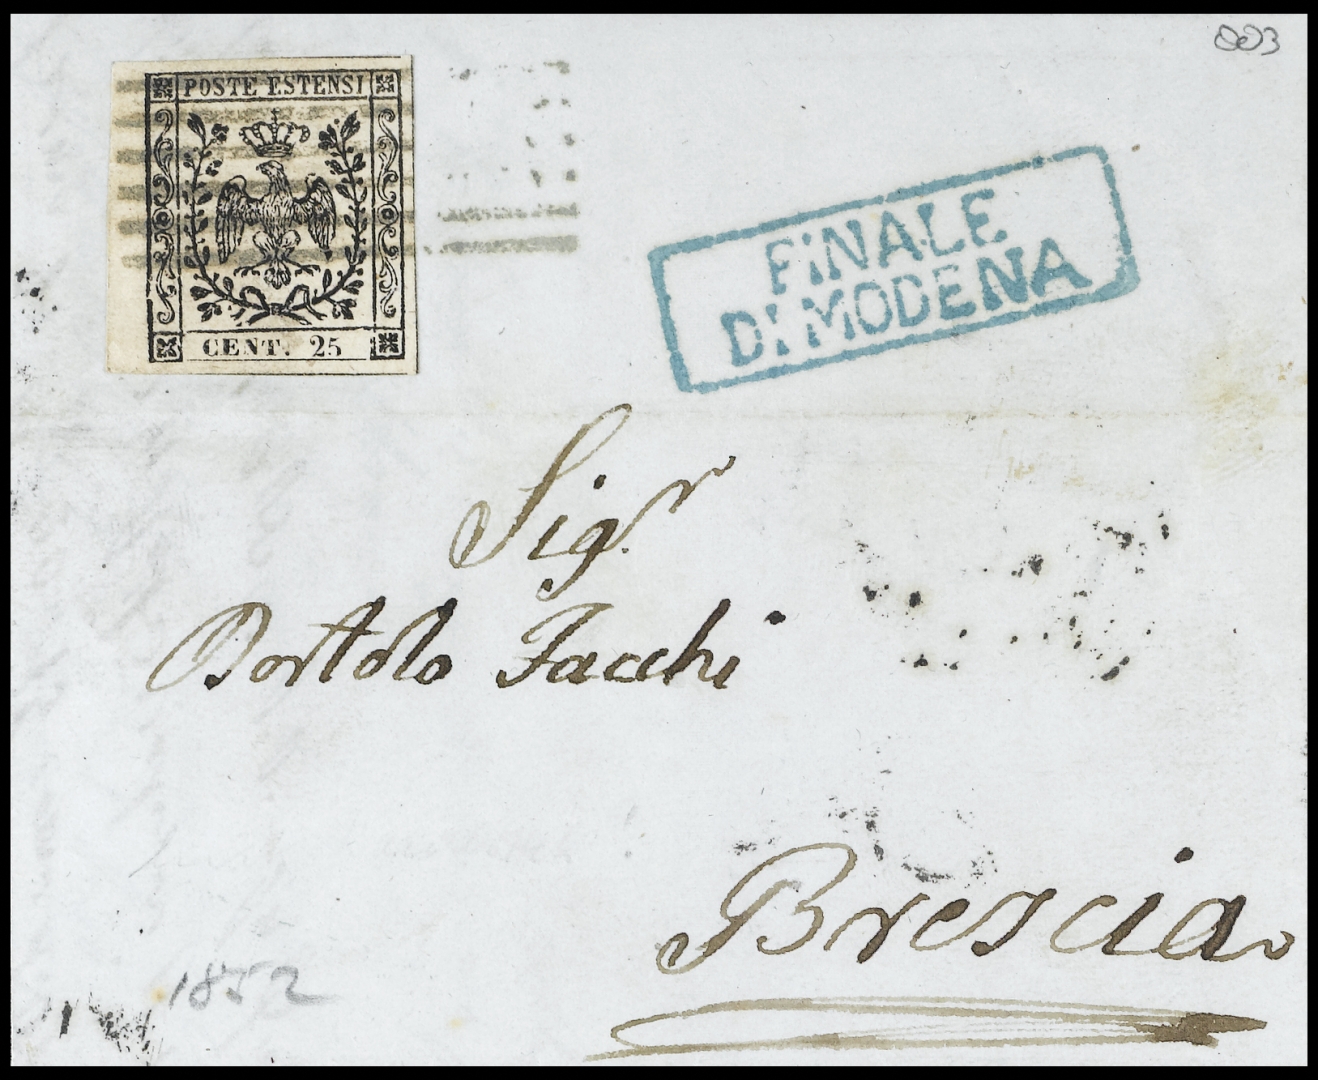 003
POSTE ESTENSI
CENT. 25
FINALE
DI MODENA
Sigr
Bortolo Facchi
Brescia
1852